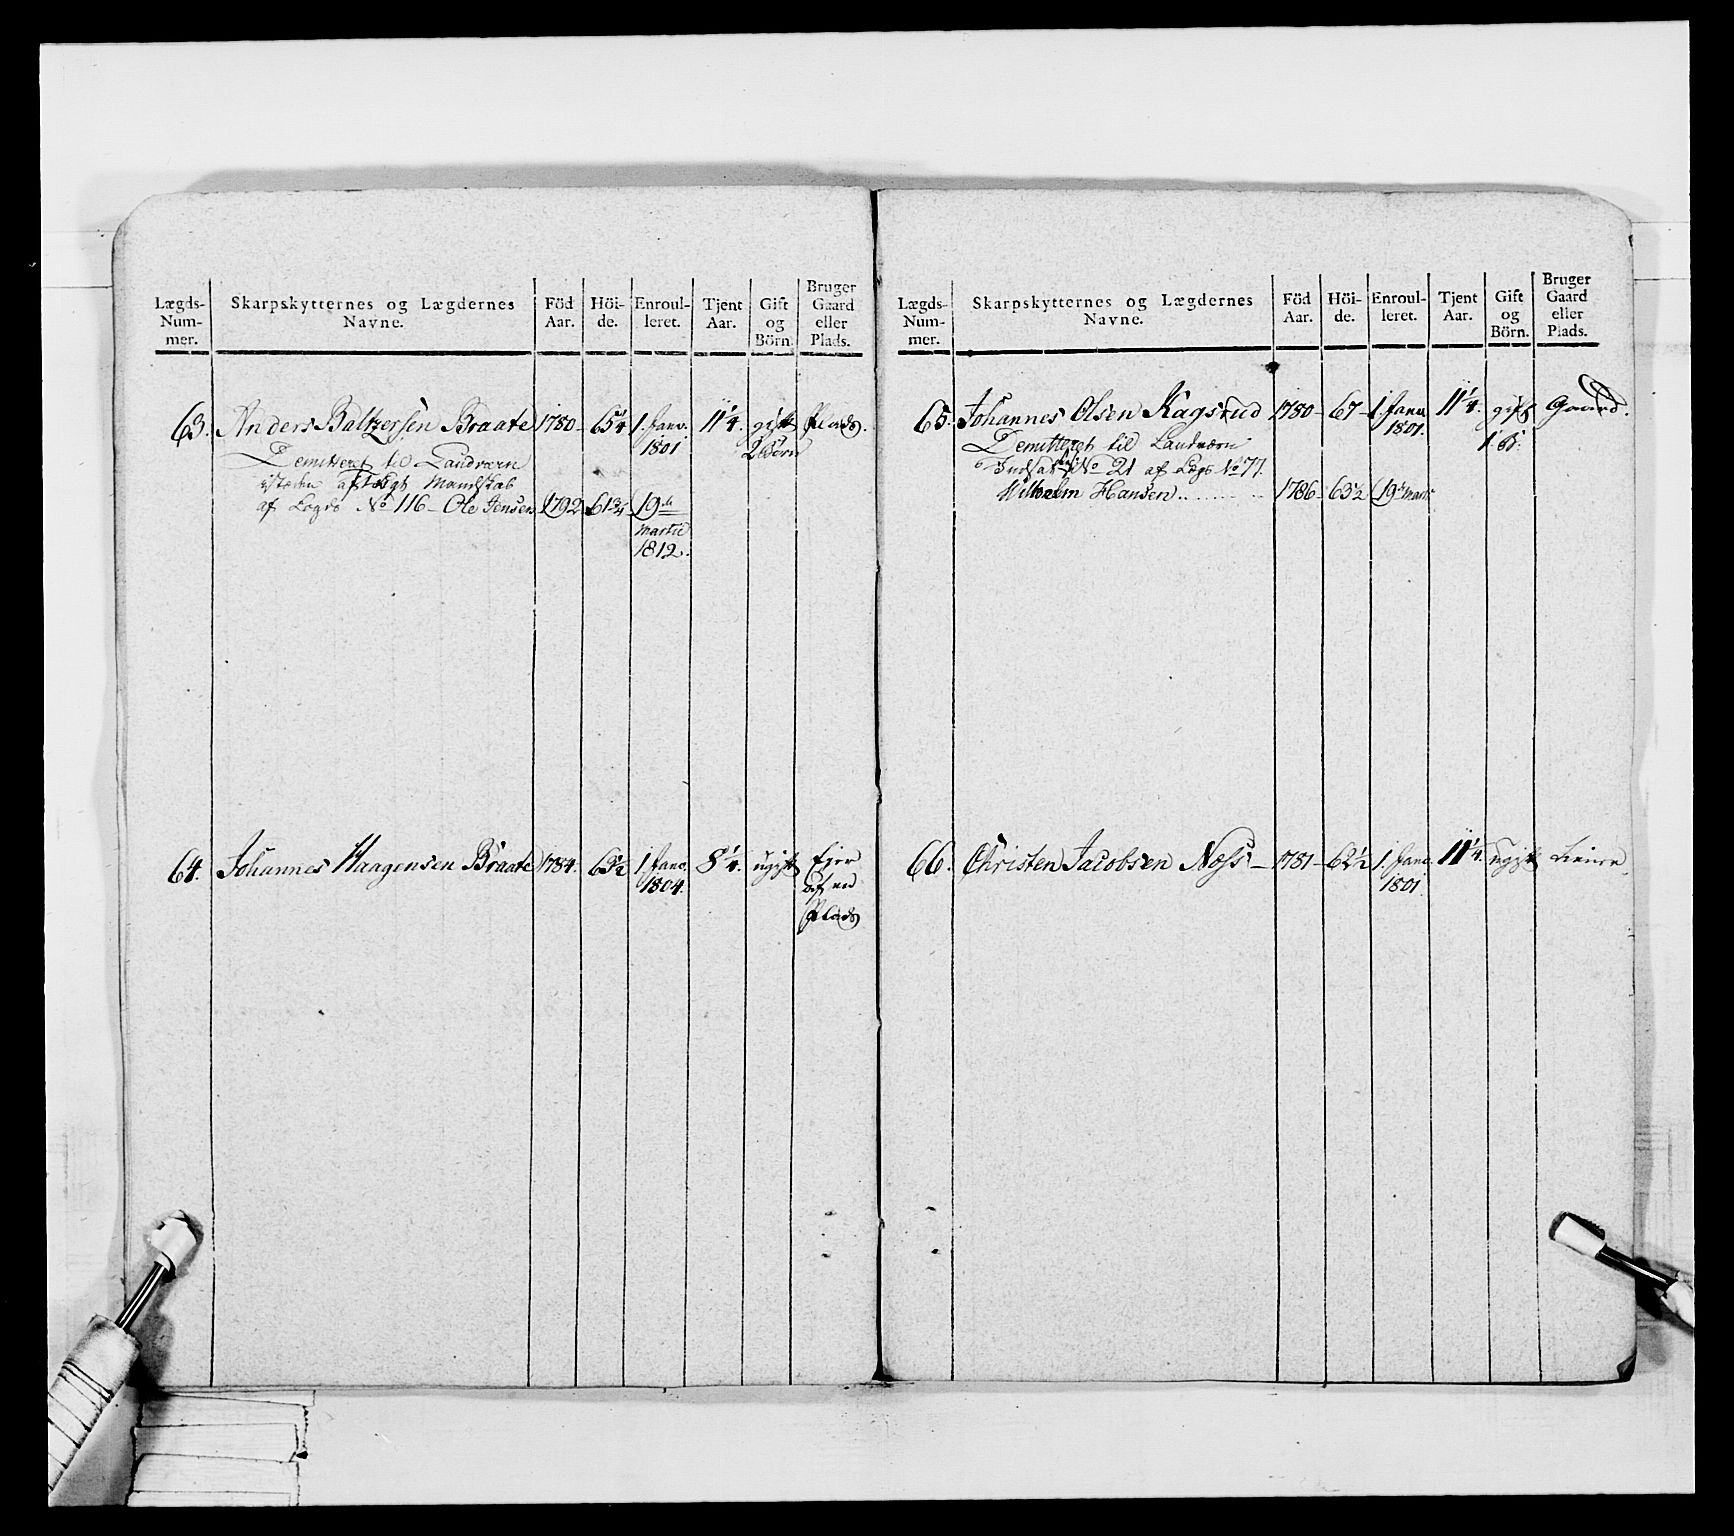 Lægds-Num-mer. Skarpskytternes og Lægdernes Navne. Föd Aar. Höi-de. Enroul-leret. Tjent Aar. Gift og Börn. Bruger Gaard eller Plads.
63. Anders Baltzersen Braate 1780 65¼ 1. Janv. 11¼. gift Plads.
1801 2 Børn
Demitteret til Landværn
af Mandskab
af Legds No 116 - Ole Jensen 1792 61¾ 19de
Martii
1812.
64. Johannes Haagensen Braate 1784. 63½ 1. Janv. 8¼. ugift Ejer
1804. af en
Plads
Lægds-Num-mer. Skarpskytternes og Lægdernes Navne. Föd Aar. Höi-de. Enroul-leret. Tjent Aar. Gift og Börn. Bruger Gaard eller Plads.
65. Johannes Olsen Kagsrud 1780- 67- 1. Janv 11¼. gift Gaard.
1801. 1. B.
Demitteret til Landværn
Indsat No 21 af Legd No 77.
Wilhelm Hansen 1786- 63½ 19de Marti
66. Christen Jacobsen Næss - 1781- 62½ 1. Janv. 11¼. ugift
1801.